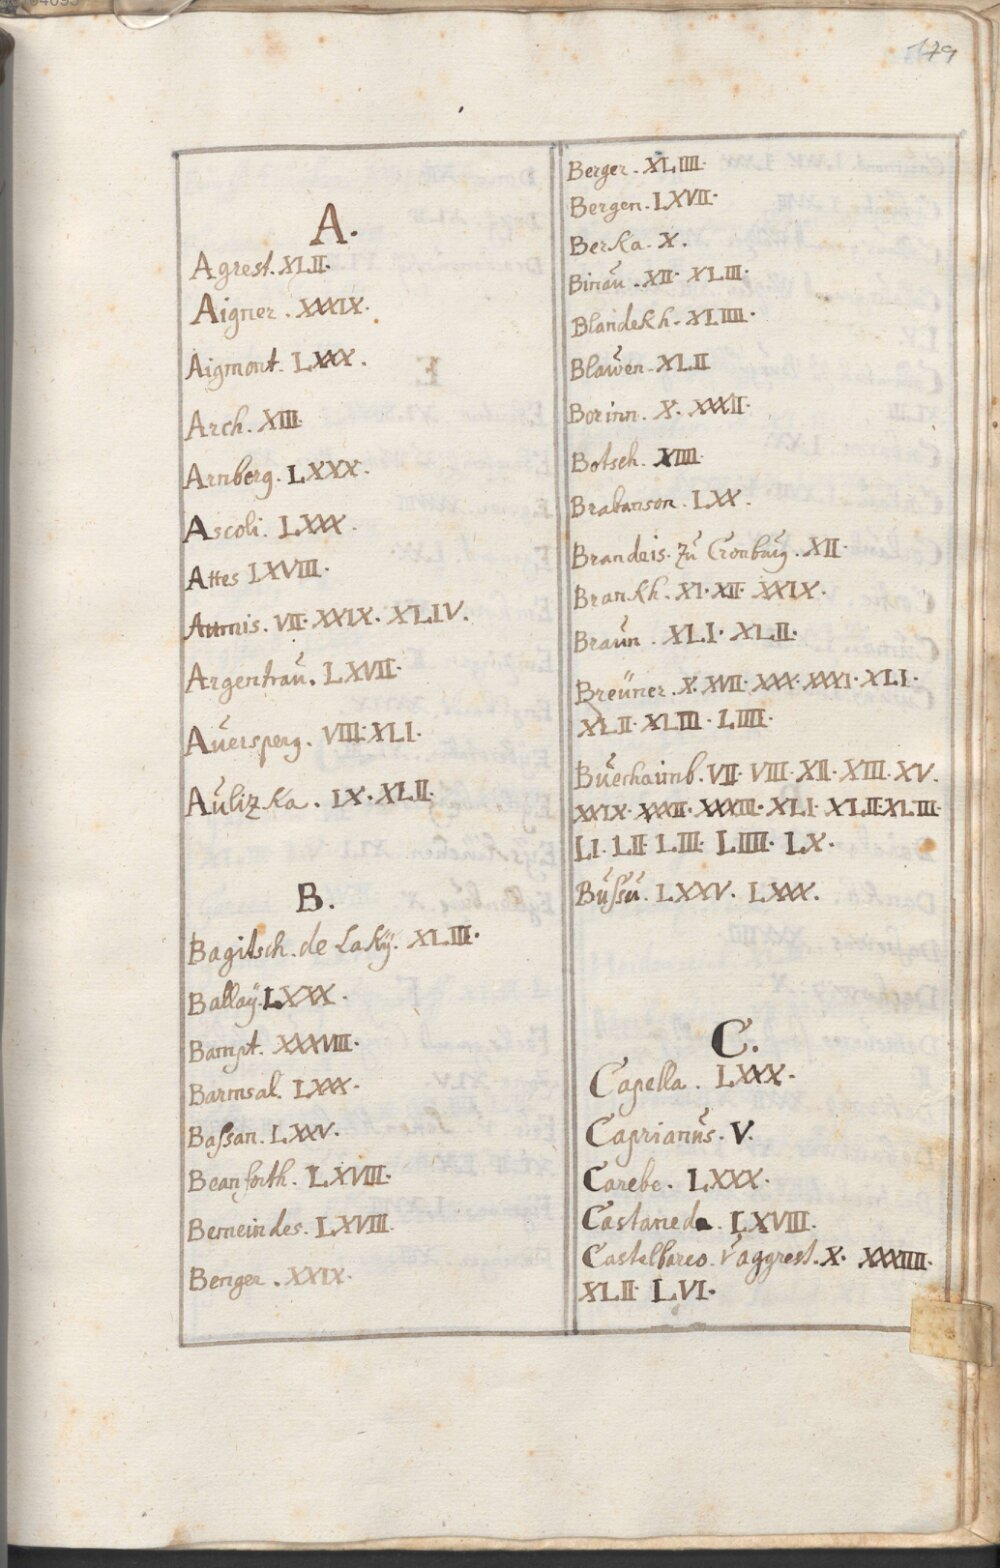 179
A.
Agrest. XLII.
Aigner. XXXIX.
Aigmont. LXXX.
Arch. XIII.
Arnberg. LXXX.
Ascoli. LXXX.
Attes LXVIII.
Attmis. VII. XXIX. XLIV.
Argentraŭ. LXVII.
Aŭersperg. VIII. XLI.
Aŭlizka. IX. XLII.
B.
Bagitsch. de Laskÿ. XLIII.
Ballaÿ. LXXX.
Bampt. XXXVIII.
Barmsal. LXXX.
Baſsan. LXXV.
Beanforth. LXVIII.
Bemeindes. LXVIII.
Benger. XXIX.
Berger. XLIIII.
Bergen. LXVII.
Berka. X.
Binaŭ. XII. XLIII.
Blandekh. XLIIII.
Blaŭen. XLII
Borinn. X. XXXII.
Botsch. XIIII.
Brabanson. LXX.
Brandeis. Zŭ Cronbŭrg. XII.
Brankh. XI. XII. XXIX.
Braŭn. XLI. XLII.
Breüner. X. XVII. XXX. XXXI. XLI.
XLII. XLIII. LIIII.
Bŭechaimb. VII. VIII. XII. XIII. XV.
XXIX. XXXII. XXXIII. XLI. XLII. XLIII.
LI. LII. LIII. LIIII. LX.
Bŭſsŭ. LXXV. LXXX.
C.
Capella. LXXX.
Caprianŭs. V.
Carebe. LXXX.
Castaneda. LXVIII.
Castelbarco. V aggrest. X. XXXIIII.
XLII. LVI.